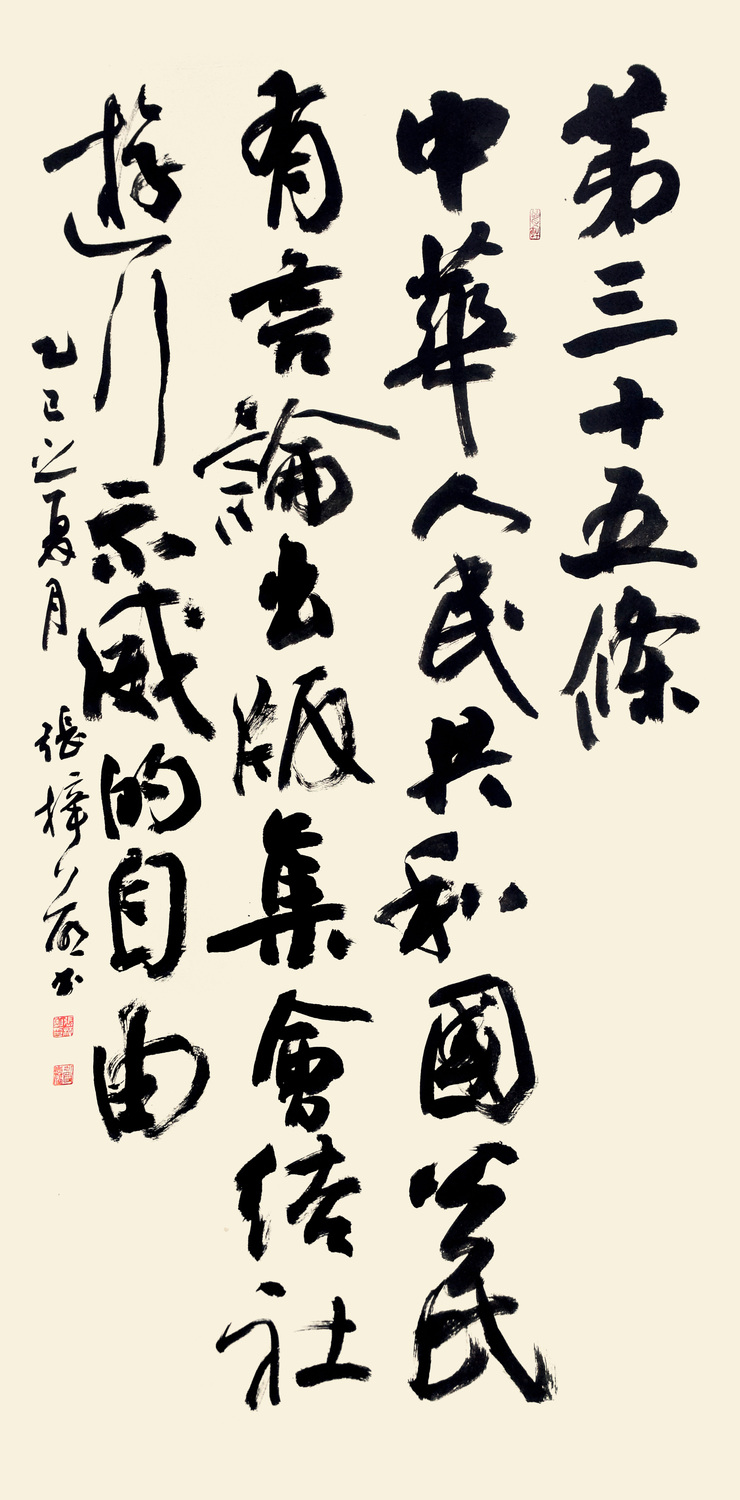 第三十五條
中華人民共和國公民
有言論出版集會結社
遊行示威的自由
乙巳之夏月 張樟 書